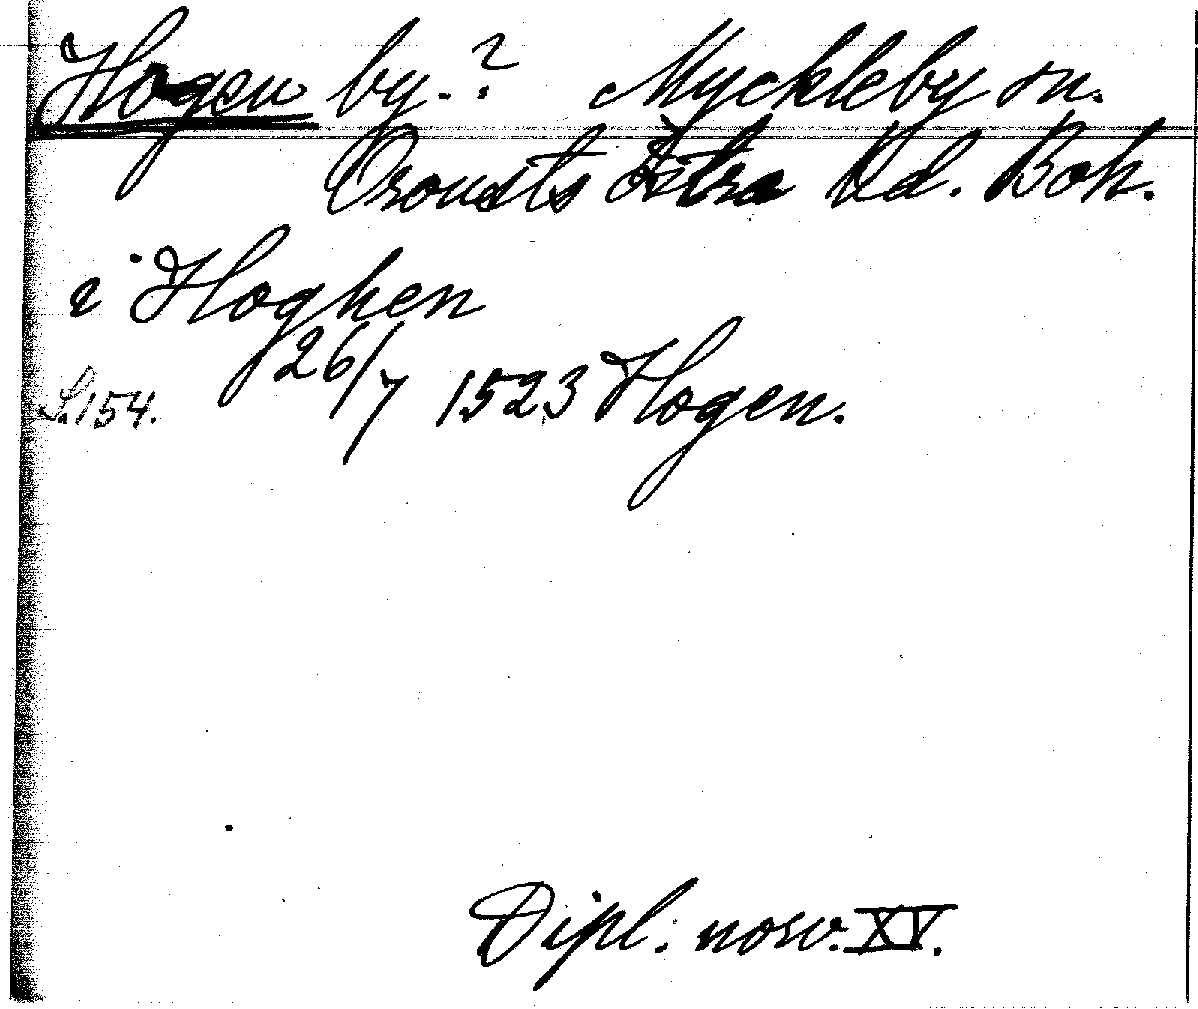 Hogen by.? Myckleby sn.
Orousts Östra Hd. Boh.
i Hoghen
S. 154. 26/7 1523 Hogen.
Dipl. norv. XV.